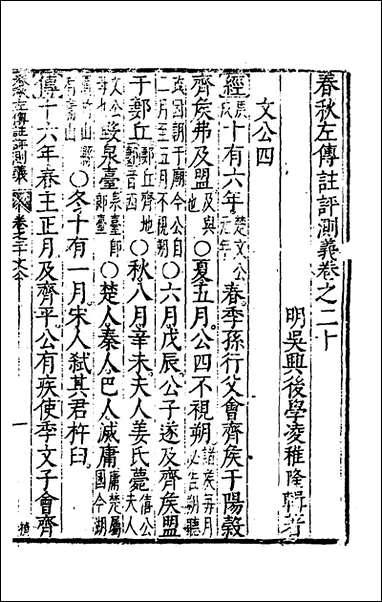 春秋左傳註評測義卷之二十
明吳興後學凌稚隆輯著
文公四
經庚戌十有六年楚文公元年春季孫行父會齊侯于陽榖
齊侯弗及盟及與也○夏五月公四不視朔諸侯每月必告朔聽
政因朝于廟今公自二月至五月不視朔○六月戊辰公子遂及齊侯盟
于郪丘郪丘齊地郪音西○秋八月辛未夫人姜氏薨僖公夫人
文公母也毀泉臺泉臺即郎臺○楚人秦人巴人滅庸庸楚屬國今湖
廣竹山縣○冬十有一月宋人弑其君杵臼
傳十六年春王正月及齊平公有疾使季文子會齊
春秋左傳註評測義
卷之二十文公
一